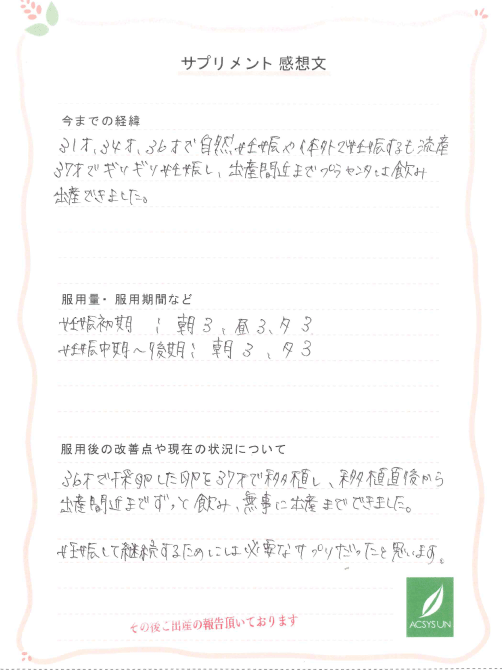 サプリメント 感想文
今までの経緯
31才、34才、36才で自然妊娠や体外で妊娠するも流産
37才でギリギリ妊娠し、出産間近までプラセンタは飲み
出産できました。
服用量・服用期間など
妊娠初期 ; 朝3、昼3、夕3
妊娠中期〜後期; 朝3、夕3
服用後の改善点や現在の状況について
36才で採卵した卵を37才で移植し、移植直後から
出産間近までずっと飲み、無事に出産までできました。
妊娠して継続するためには必要なサプリだったと思います。
その後ご出産の報告頂いております
ACSYSUN